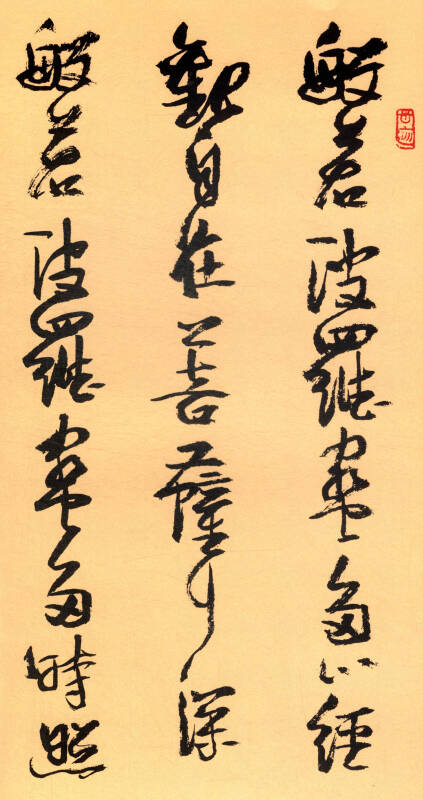 般若波羅蜜多心經
觀自在菩薩行深
般若波羅蜜多時照